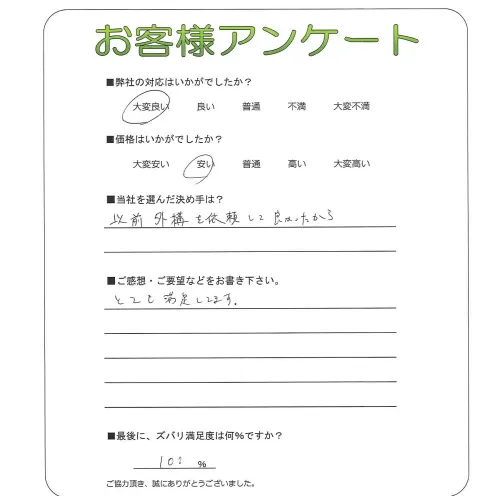 お客様アンケート
■弊社の対応はいかがでしたか？
大変良い 良い 普通 不満 大変不満
■価格はいかがでしたか？
大変安い 安い 普通 高い 大変高い
■当社を選んだ決め手は？
以前外構を依頼して良かったから
■ご感想・ご要望などをお書き下さい。
とても満足してます。
■最後に、ズバリ満足度は何％ですか？
100 %
ご協力頂き、誠にありがとうございました。